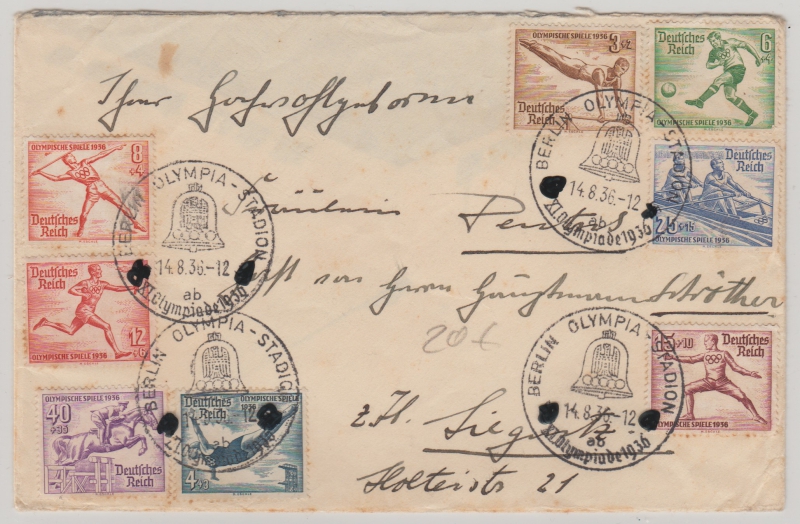 OLYMPISCHE SPIELE 1936
3
Deutsches
Reich
Deutsches
Reich
6
OLYMPISCHE SPIELE 1936
Ihrer Hochwohlgeboren
OLYMPISCHE SPIELE 1936
8+4
Deutsches
Reich
BERLIN OLYMPIA-STADION
14.8.36.-12
ab
XI.Olympiade1936
BERLIN OLYMPIA-STADION
14.8.36.-12
ab
XI.Olympiade1936
Deutsches
Reich
25+15
OLYMPISCHE SPIELE 1936
Fräulein
Deutsches
Reich
12
OLYMPISCHE SPIELE 1936
von Herrn Hauptmann Schröther
20€
OLYMPISCHE SPIELE 1936
40
+35
Deutsches
Reich
Deutsches
Reich
OLYMPISCHE SPIELE
1936
4+3
BERLIN OLYMPIA-STADION
12
ab
BERLIN OLYMPIA-STADION
14.8.36.-12
ab
XI.Olympiade1936
+10
Deutsches
Reich
OLYMPISCHE SPIELE 1936
z. Zt.
21